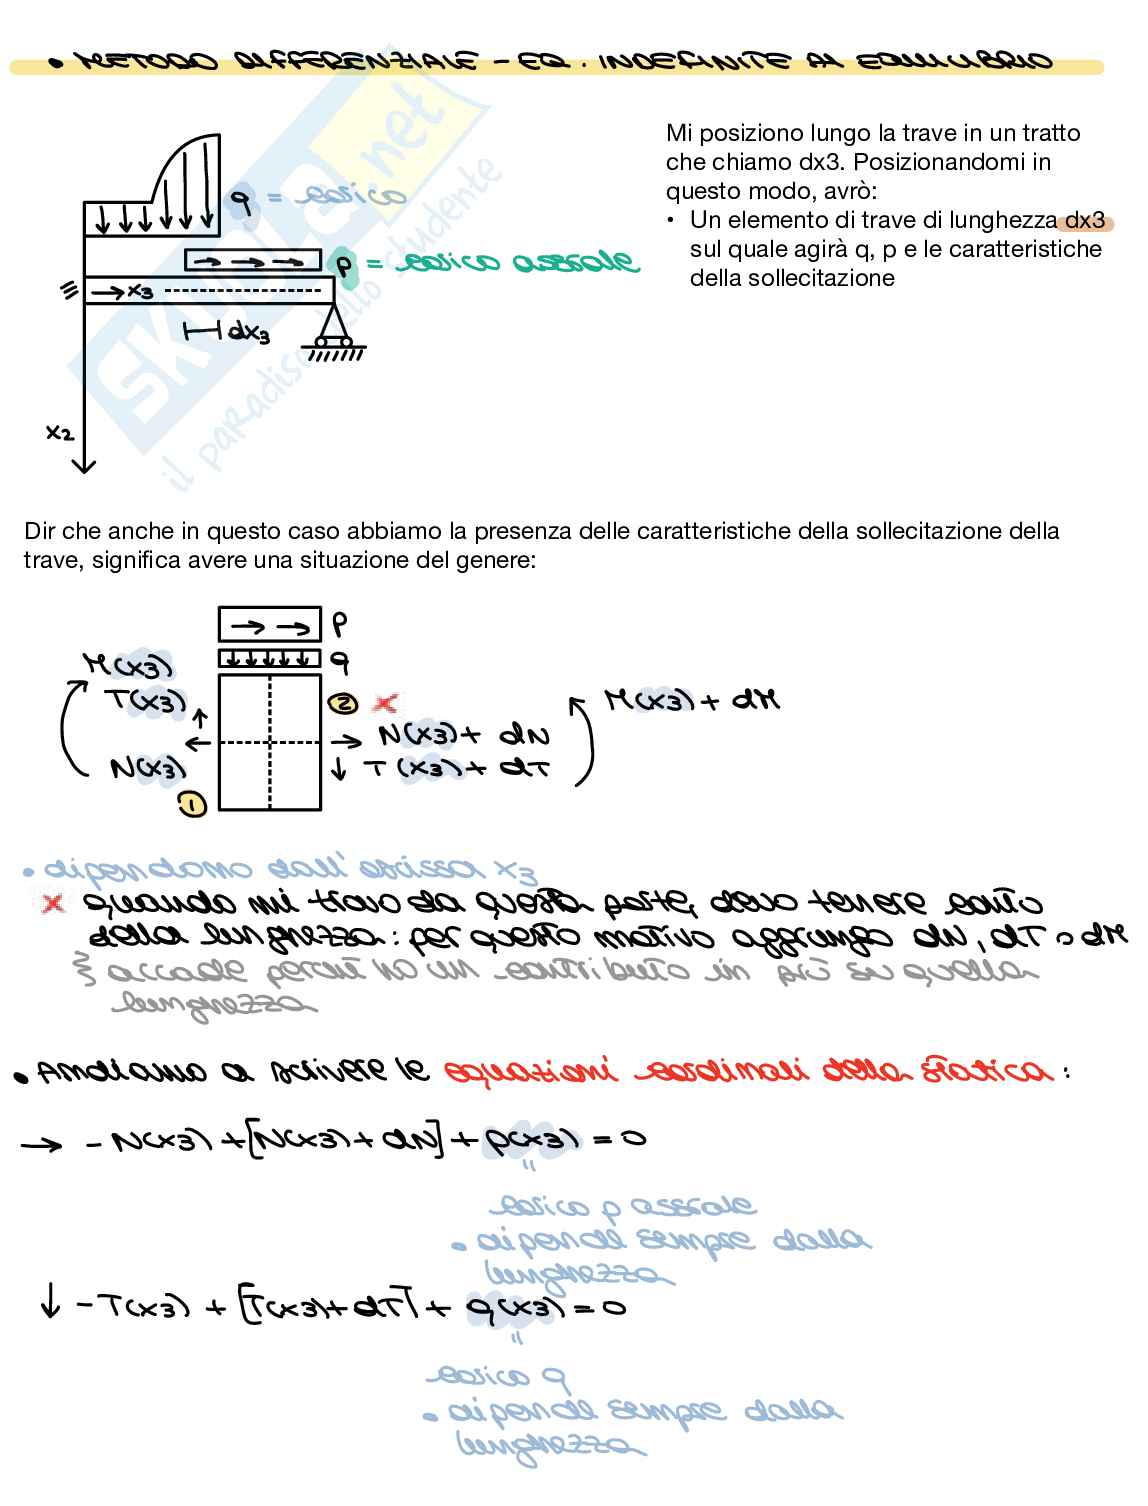 • METODO DIFFERENZIALE - EQ. INDEFINITE DI EQUILIBRIO
Mi posiziono lungo la trave in un tratto
che chiamo dx3. Posizionandomi in
questo modo, avrò:
• Un elemento di trave di lunghezza dx3
sul quale agirà q, p e le caratteristiche
della sollecitazione
q = carico
p = carico assiale
x3
dx3
x2
SKUOLA.net
il paradiso dello studente
Dir che anche in questo caso abbiamo la presenza delle caratteristiche della sollecitazione della
trave, significa avere una situazione del genere:
p
q
M(x3)
T(x3)
N(x3)
1
2 x
N(x3) + dN
T(x3) + dT
M(x3) + dM
• dipendono dall'ascissa x3
x quando mi trovo da questa parte, devo tenere conto
della lunghezza: per questo motivo aggiungo dN, dT o dM
accade perché ho un contributo in più su quella
lunghezza
• Andiamo a scrivere le equazioni cardinali della statica:
→ - N(x3) + [N(x3) + dN] + p(x3) = 0
"
carico p assiale
• dipende sempre dalla
lunghezza
↓ - T(x3) + [T(x3) + dT] + q(x3) = 0
"
carico q
• dipende sempre dalla
lunghezza